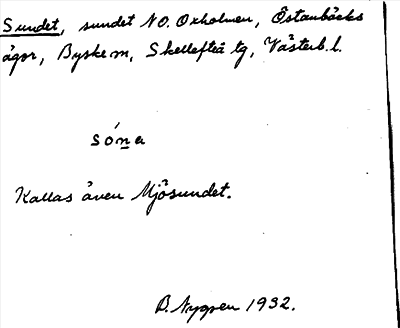 Sundet, sundet NO. Oxholmen, Östanbäcks
ägor, Byske m, Skellefteå tg, Västerb. l.
sóna
Kallas även Mjösundet.
B. Nygren 1932.